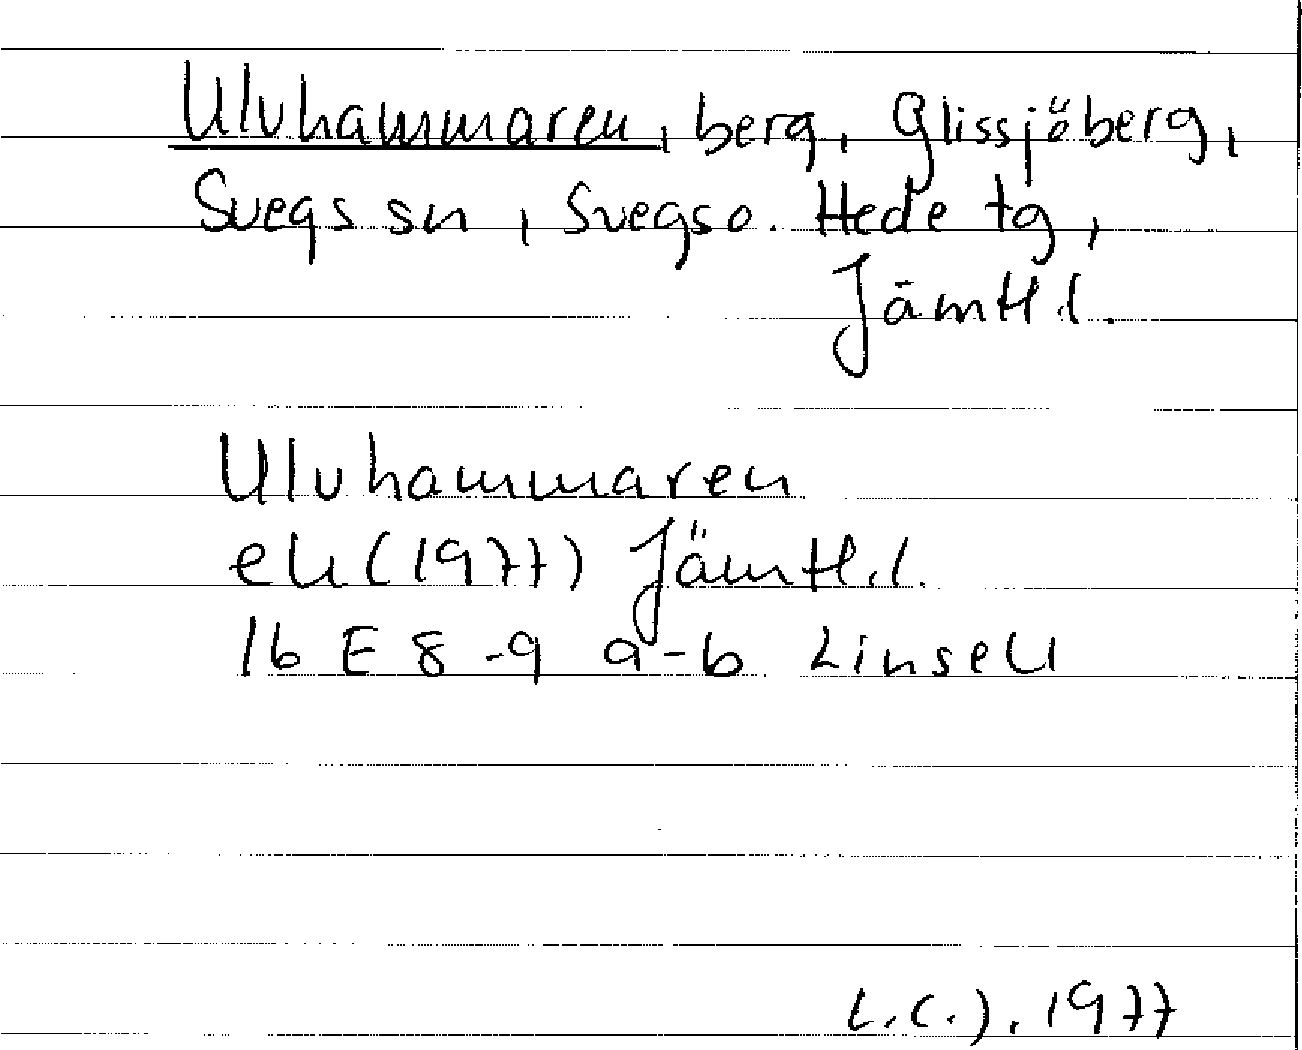 Ulvhammaren, berg, Glissjöberg,
Svegs sn, Svegs o. Hede tg,
Jämtl. l.
Ulvhammaren
ek (1977) Jämtl. l.
16 E 8-9 a-b Linsell
L.C.J. 1977